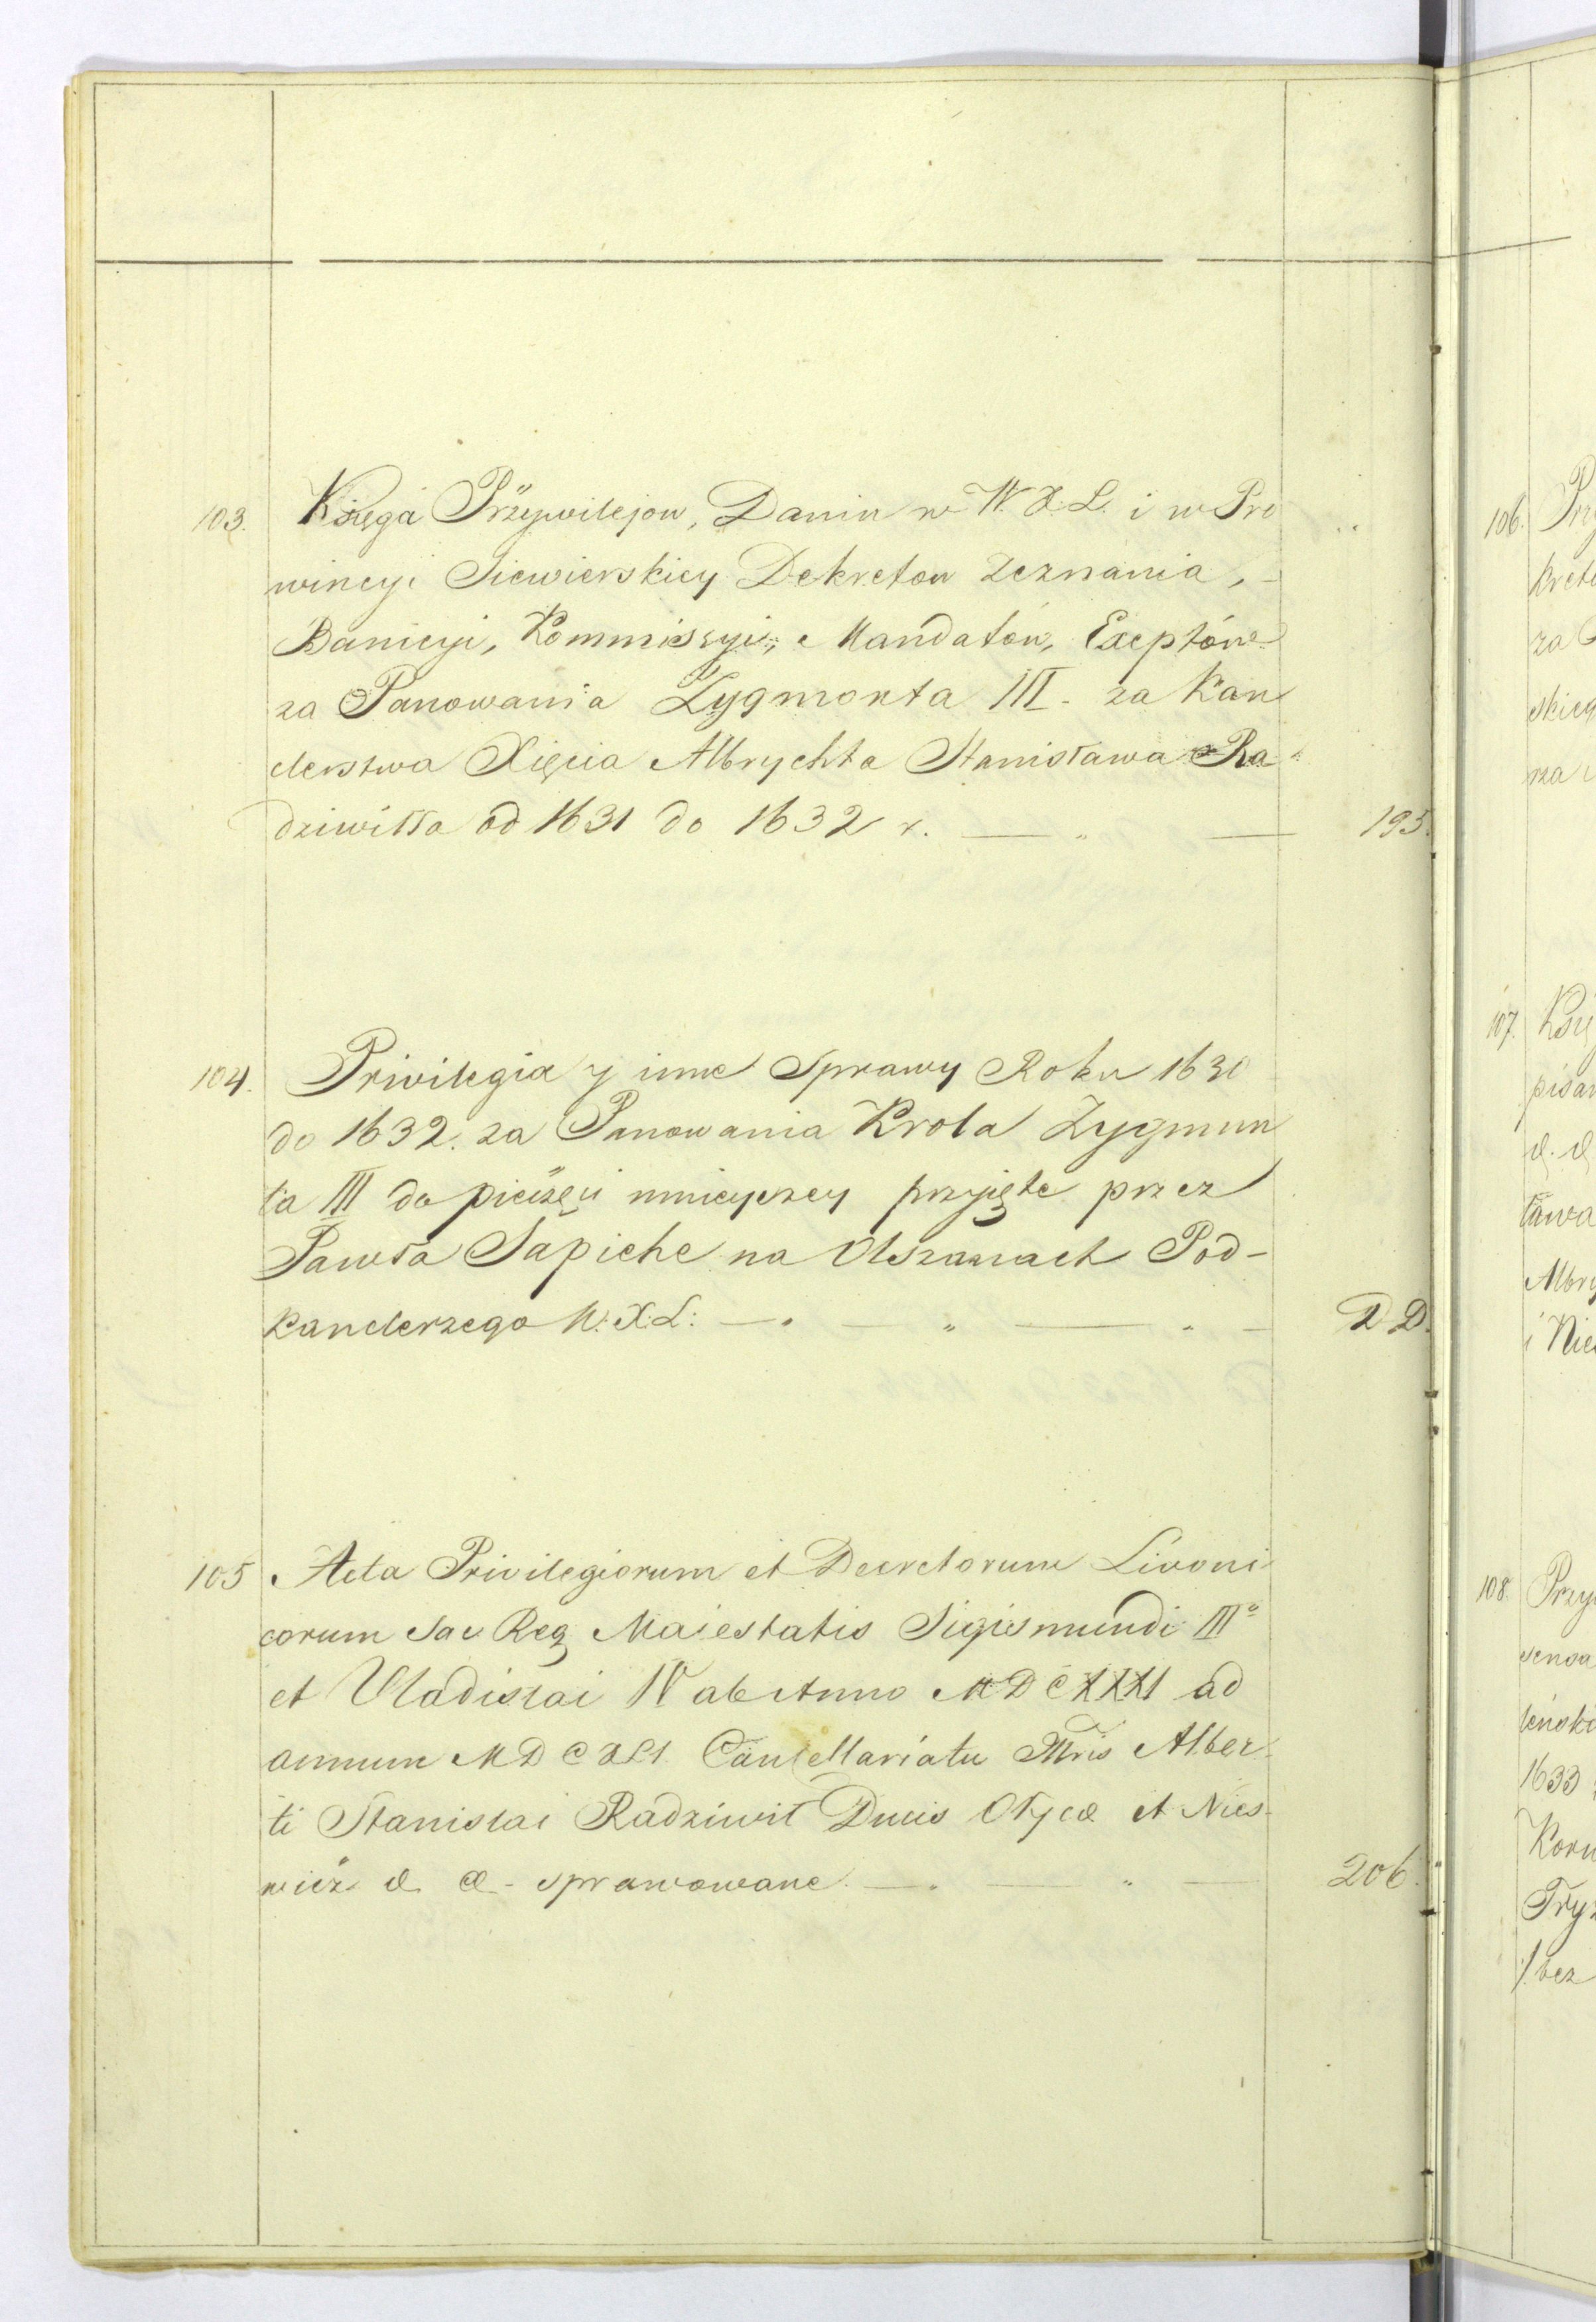 103. Księga Przywilejow, Danin w W. X. L. i w Pro
wincyi Siewierskiey Dekretow Zeznania,
Banicyi, Kommissyi, Mandatów, Exeptów
za Panowania Zygmonta III - za Kan
clerstwa Xięcia Albrychta Stanisława Ra-
dziwiłła od 1631 do 1632 r. — " — 195.
104. Privilegia y inne Sprawy Roku 1630
do 1632. za Panowania Krola Zygmun
ta III do pieczęci mnieyszey przyjęte przez
Pawła Sapiehe na Olszanach Pod-
Kanclerzego W. X. L: — " — " — D D.
105 Acta Privilegiorum et Decretorum Livoni
corum Sac Reg Maiestatis Sigismundi III
et Vladislai IV ab Anno MDCXXXI ad
annum MDCXLI. Cancellariatu Illris Alber-
ti Stanislai Radziwił Ducis Olycæ et Nies-
wież & & - sprawowane. — " — 206.
106.
107.
pisan
Albry
i Nies
108. Przy
1633
bez